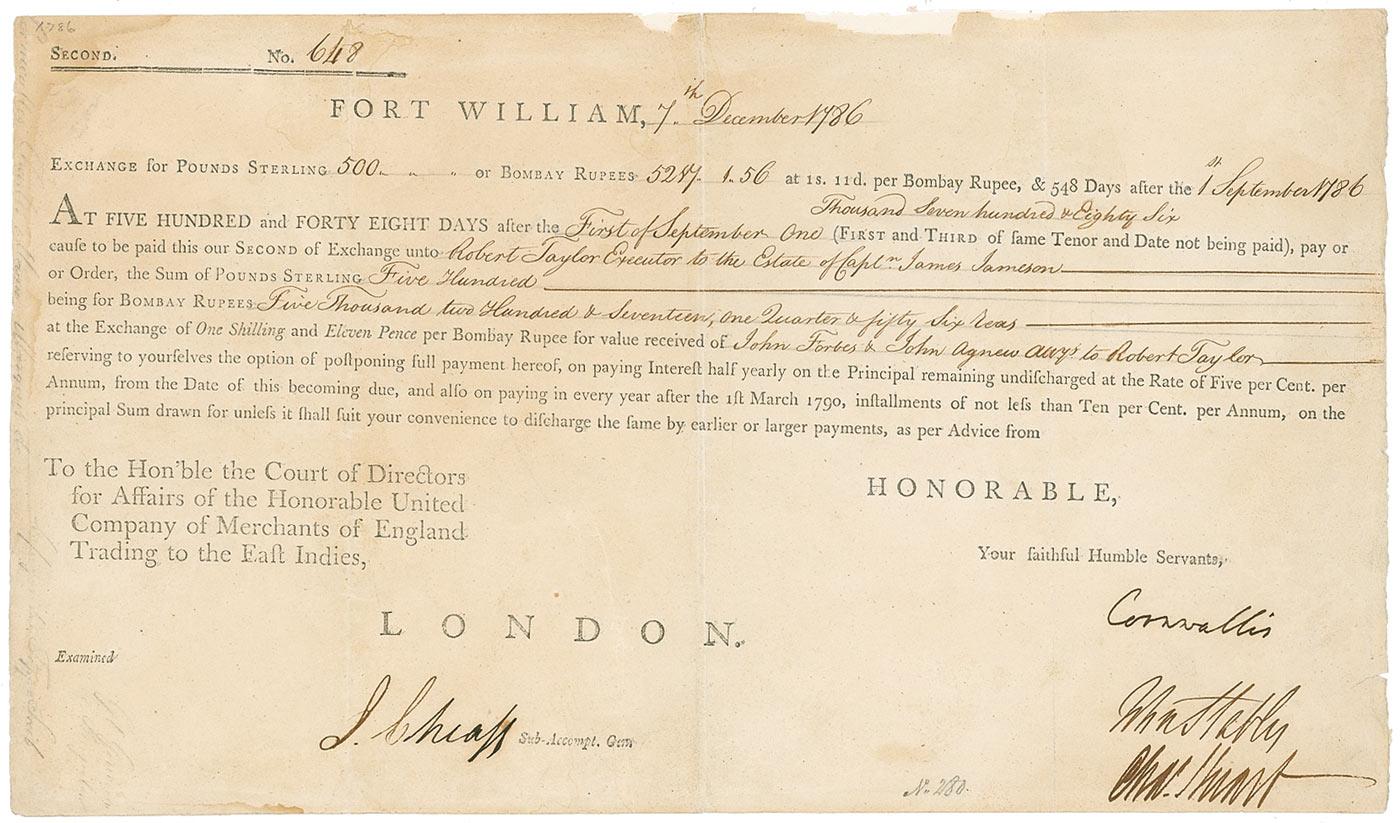 1786
SECOND. No. 648
FORT WILLIAM, 7th December 1786
EXCHANGE for POUNDS STERLING 500 „ „ „ or BOMBAY RUPEES 5217. 1. 56 at 1s. 11d. per Bombay Rupee, & 548 Days after the 1st September 1786
Thousand Seven hundred & Eighty Six
AT FIVE HUNDRED and FORTY EIGHT DAYS after the First of September One (FIRST and THIRD of ſame Tenor and Date not being paid), pay or
cauſe to be paid this our SECOND of Exchange unto Robert Taylor Executor to the Estate of Captn. James Jameson
or Order, the Sum of POUNDS STERLING Five Hundred
being for BOMBAY RUPEES Five Thousand two Hundred & Seventeen, one Quarter & fifty Six Reas
at the Exchange of One Shilling and Eleven Pence per Bombay Rupee for value received of John Forbes & John Agnew Attys to Robert Taylor
reſerving to yourſelves the option of poſtponing full payment hereof, on paying Intereſt half yearly on the Principal remaining undiſcharged at the Rate of Five per Cent. per
Annum, from the Date of this becoming due, and alſo on paying in every year after the 1ſt March 1790, inſtallments of not leſs than Ten per Cent. per Annum, on the
principal Sum drawn for unleſs it ſhall ſuit your convenience to diſcharge the ſame by earlier or larger payments, as per Advice from
To the Hon'ble the Court of Directors
for Affairs of the Honorable United
Company of Merchants of England
Trading to the Eaſt Indies,
HONORABLE,
Your faithful Humble Servants,
LONDON.
Cornwallis
Examined
J. Cheap Sub-Accompt. Genl
Wm Stables
Chas. Stuart
No. 280.